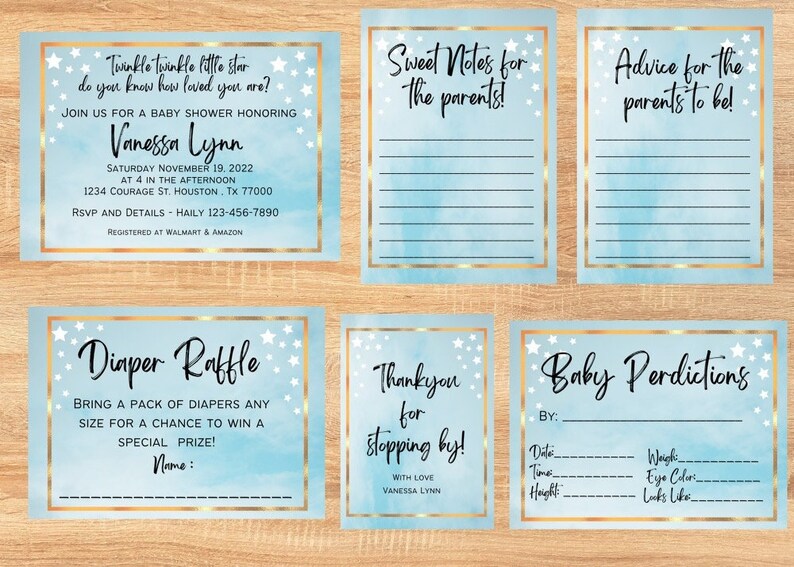 Twinkle twinkle little star
do you know how loved you are?
Join us for a baby shower honoring
Vanessa Lynn
Saturday November 19, 2022
at 4 in the afternoon
1234 Courage St. Houston , Tx 77000
Rsvp and Details - Haily 123-456-7890
Registered at Walmart & Amazon
Sweet Notes for
the parents!
Advice for the
parents to be!
Diaper Raffle
Bring a pack of diapers any
size for a chance to win a
special prize!
Name :
Thankyou
for
stopping by!
With love
Vanessa Lynn
Baby Perdictions
By:
Date:
Time:
Height:
Weigh:
Eye Color:
Looks Like: